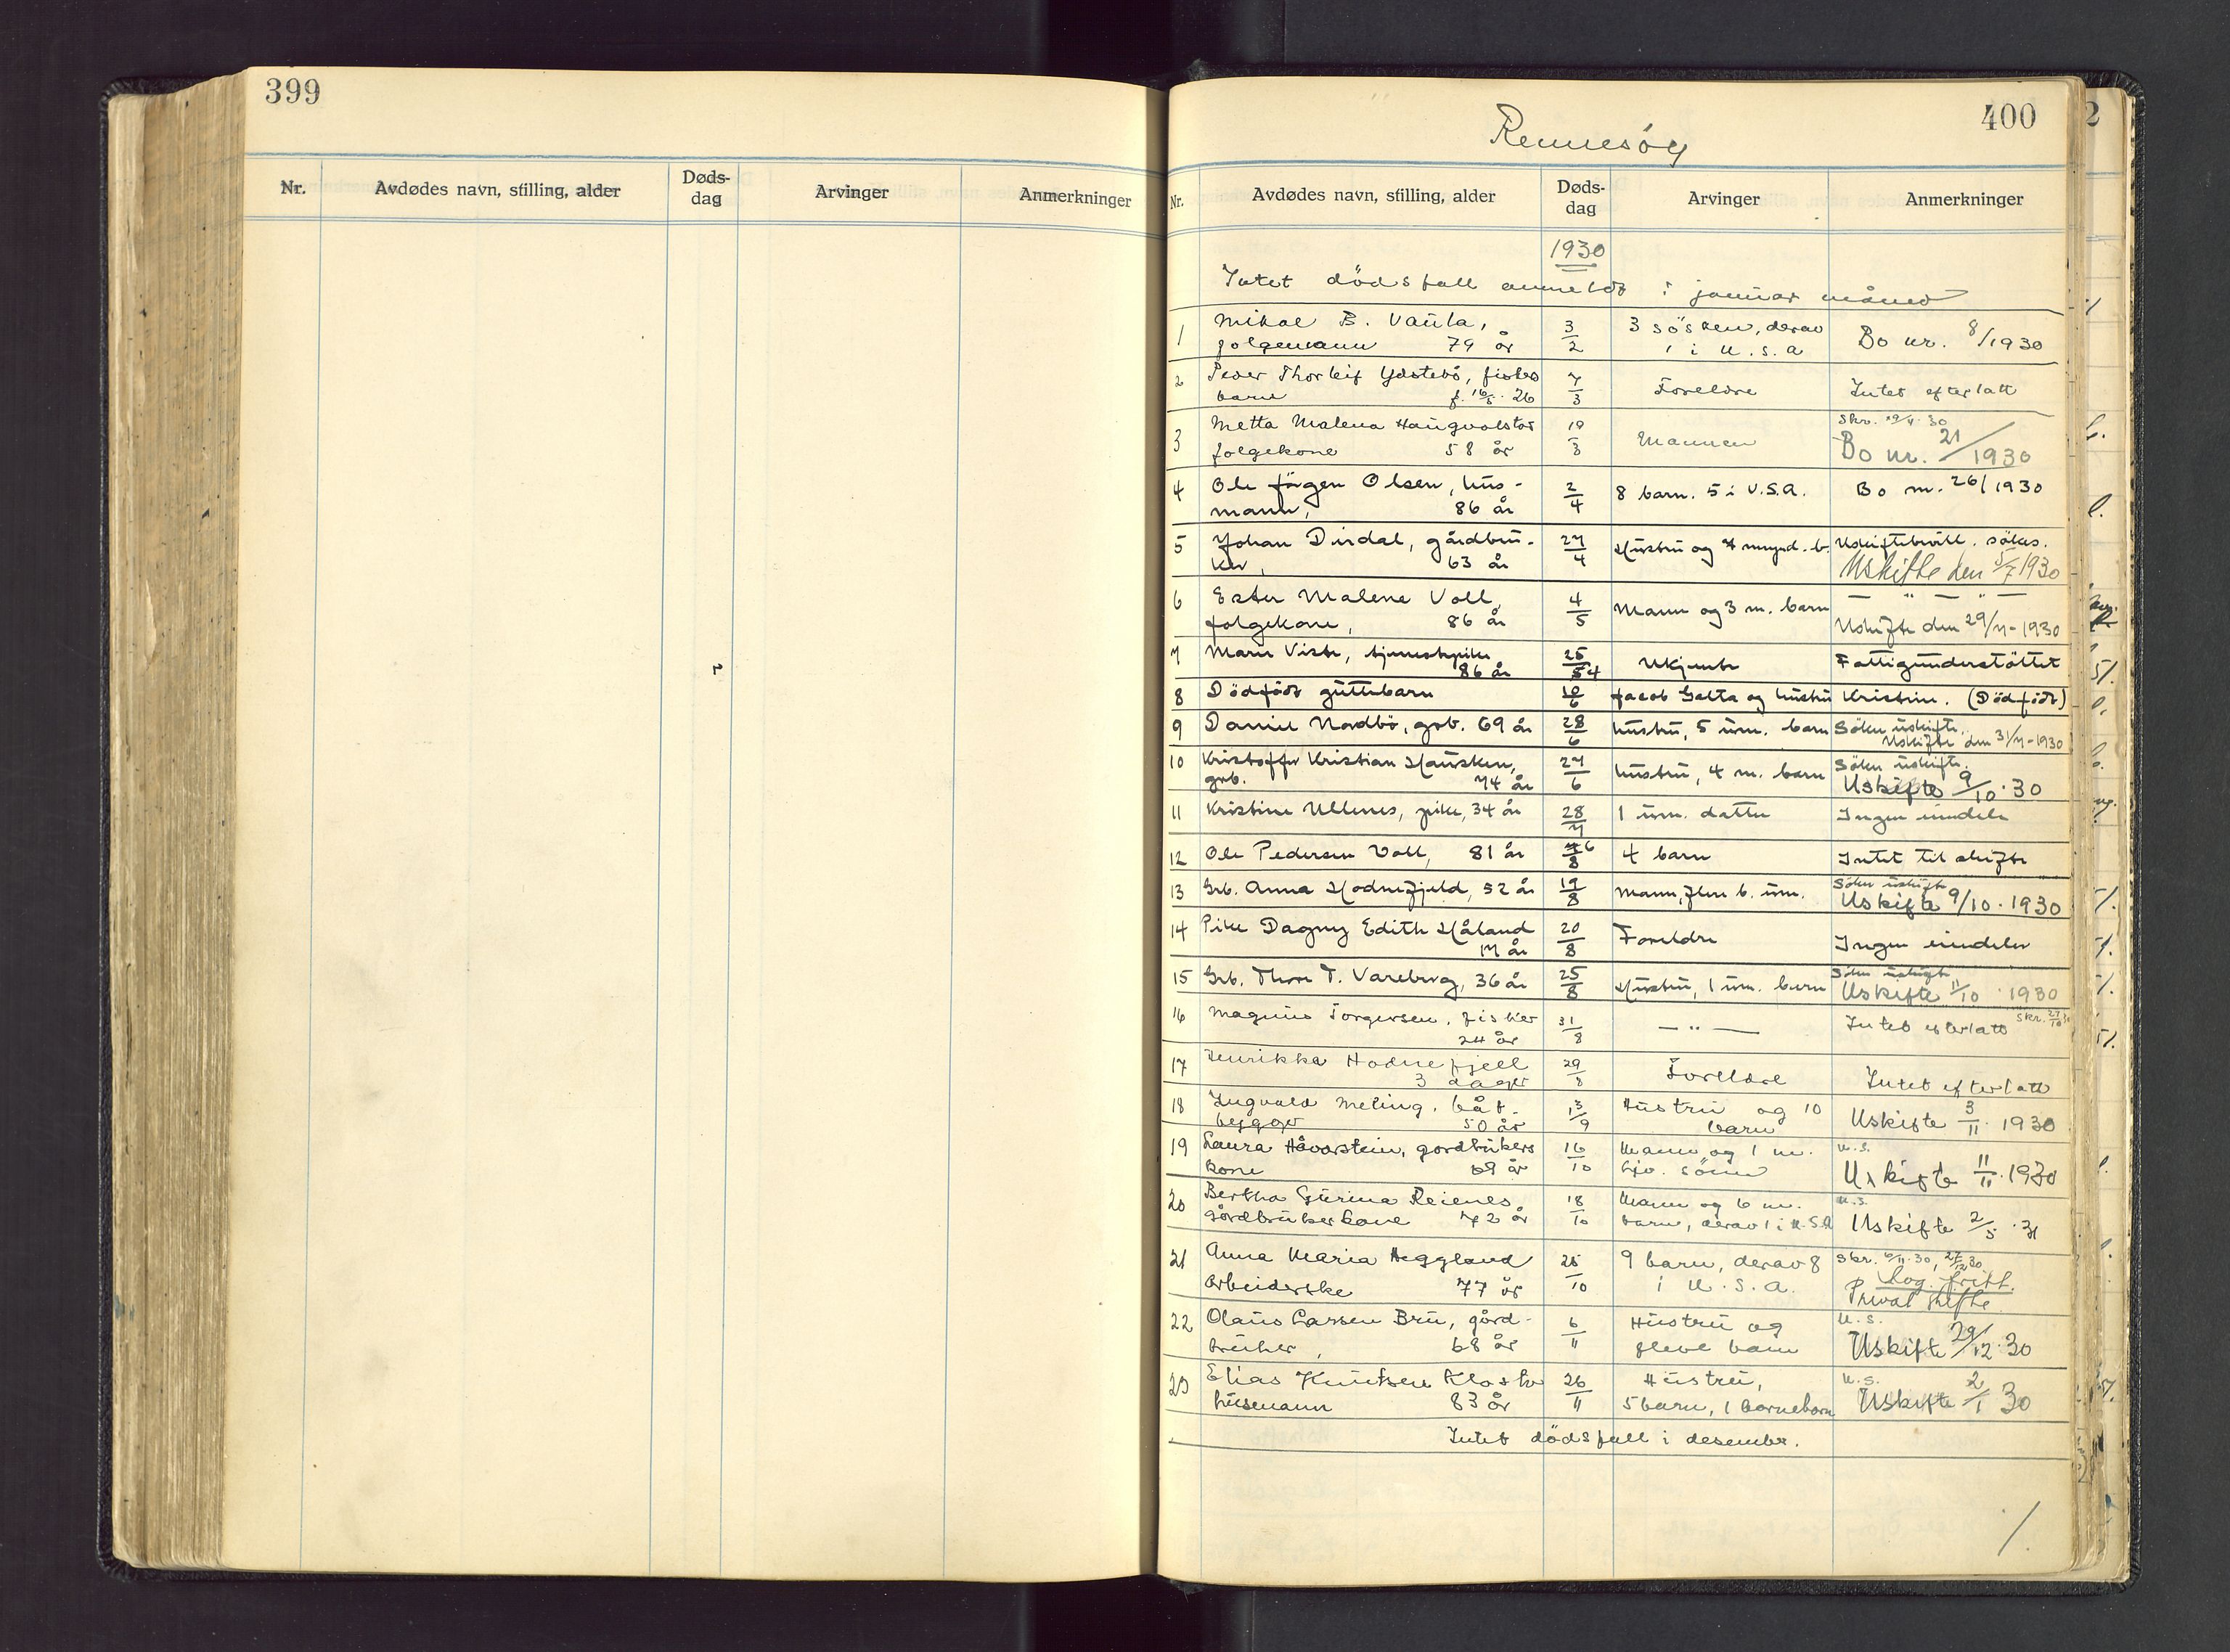 399
Nr.
Avdødes navn, stilling, alder
Døds-
dag
Arvinger
Anmerkninger
400
Rennesöy
Nr.
Avdødes navn, stilling, alder
Døds-
dag
Arvinger
Anmerkninger
1930
Intet dödsfall anmeldt i januar måned
1 Mikal B. Vaula, 3/2 3 sösken, derav Bo nr. 8/1930
folgemann 79 år 1 i U.S.A
2 Peder Thorleif Ydstebö, fisker 7/3 Foreldre Intet efterlatt
barn f. 16/5. 26
3 Metta Malena Haugvalstad 19/3 Mannen Skr. 19/4. 30
folgekone 58 år Bo nr. 21/1930
4 Ole Jörgen Olsen, hus- 2/4 8 barn. 5 i U.S.A. Bo nr. 26/1930
mann, 86 år
5 Johan Dirdal, gårdbru- 27/4 Hustru og 4 mynd. b. Uskiftebevill. sökes.
ker, 63 år Uskifte den 5/7 1930
6 Ester Malene Voll, 4/5 Mann og 3 m. barn — " — " —
folgekone, 86 år Uskifte den 29/7-1930
7 Marie Viste, tjenestepike 25/4 Ukjente Fattigunderstöttet
86 år
8 Dödfödt guttebarn 10/6 Jacob Galta og hustru Kristine. (Dödfödt)
9 Daniel Nordbö, grb. 69 år 28/6 hustru, 5 um. barn Söker uskifte.
Uskifte den 31/7-1930
10 Kristoffer Kristian Hausken, 27/6 hustru, 4 m. barn Söker uskifte.
grb. 74 år Uskifte 9/10. 30
11 Kristine Ullenes, pike, 34 år 28/7 1 um. datter Ingen eiendeler
12 Ole Pedersen Voll, 81 år 6/8 4 barn Intet til skifte
13 Grb. Anna Hodnefjeld, 52 år 19/8 Mann, flere b. um. Söker uskifte
Uskifte 9/10. 1930
14 Pike Dagny Edith Håland 20/8 Foreldre Ingen eiendeler
17 år
15 Grb. Thore T. Vareberg, 36 år 25/8 Hustru, 1 um. barn Söker uskifte
Uskifte 11/10. 1930
16 Magnus Torgersen, fisker 31/8 — " — Intet efterlatt Skr. 27/10 30
24 år
17 Henrikka Hodnefjell 29/8 Foreldre Intet efterlatt
3 dager
18 Ingvald Meling, båt- 13/9 Hustru og 10 Uskifte 3/11. 1930
bygger 50 år barn
19 Laura Håvarstein, gardbrukers 16/10 Mann og 1 m. U.S.
kone 69 år sönn Uskifte 11/11. 1930
20 Bertha Gurina Reienes 18/10 Mann og 6 m. U.S.
Gårdbrukerkone 72 år barn, derav 1 i U.S.A Uskifte 2/5. 31
21 Anna Maria Heggland 25/10 9 barn, derav 8 Skr. 6/11. 30, 27/12 30
Arbeiderske 77 år i U.S.A.
Privat skifte
22 Olaus Larsen Bru, gård- 6/11 Hustru og U.S.
bruker, 68 år flere barn Uskifte 29/12. 30
23 Elias Knutsen Kloster 26/11 Hustru, U.S.
husmann 83 år 5 barn, 1 barnebarn Uskifte 2/1 30
Intet dödsfall i desember.